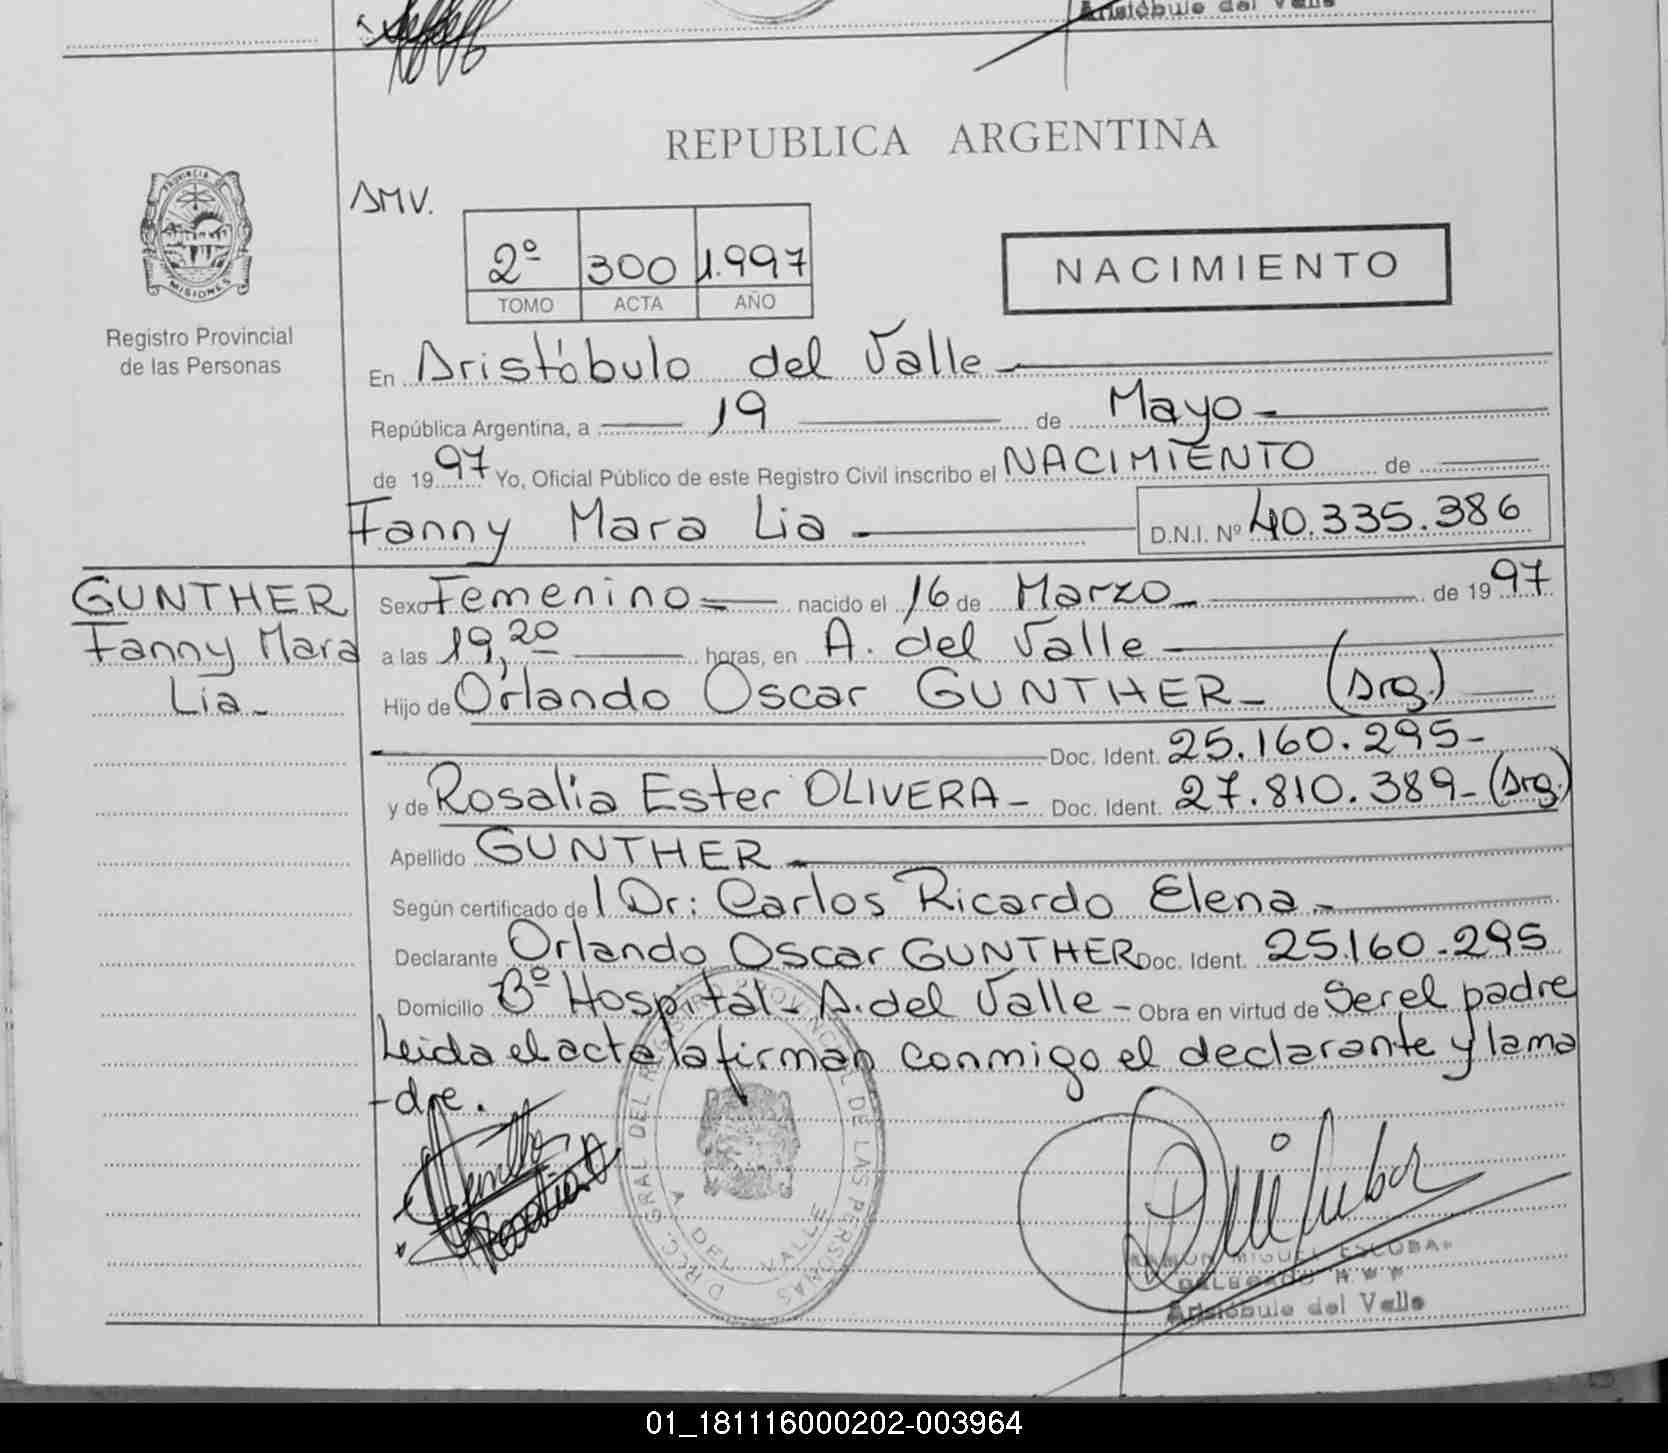 Aristóbulo del Valle
REPUBLICA ARGENTINA
PROVINCIA DE
MISIONES
Registro Provincial
de las Personas
AMV.
2º 300 1.997
TOMO ACTA AÑO
NACIMIENTO
En Aristóbulo del Valle
República Argentina, a 19 de Mayo
de 1997 Yo, Oficial Público de este Registro Civil inscribo el NACIMIENTO de
Fanny Mara Lia D.N.I. Nº 40.335.386
GUNTHER
Fanny Mara
Lia
Sexo Femenino nacido el 16 de Marzo de 1997
a las 19,20 horas, en A. del Valle
Hijo de Orlando Oscar GUNTHER (Arg.)
Doc. Ident. 25.160.295
y de Rosalia Ester OLIVERA Doc. Ident. 27.810.389 (Arg.)
Apellido GUNTHER
Según certificado del Dr: Carlos Ricardo Elena
Declarante Orlando Oscar GUNTHER Doc. Ident. 25.160.295
Domicilio Bº Hospital - A. del Valle - Obra en virtud de Ser el padre
Leida el acta la firman conmigo el declarante y la ma
-dre.
DIREC. GRAL DEL REGISTRO PROVINCIAL DE LAS PERSONAS
A DEL VALLE
RAMON MIGUEL ESCOBAR
DELEGADO
Aristóbulo del Valle
01_181116000202-003964